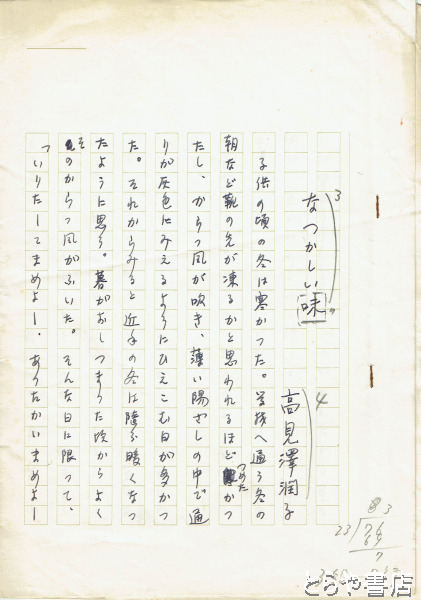 3
なつかしい味
4
高見澤潤子
子供の頃の冬は寒かった。学校へ通う冬の
朝など靴の先が凍るかと思われるほどつめたかつ
たし、からっ風が吹き、薄い陽ざしの中で通
りが灰色にみえるようにひえこむ日が多かつ
た。それからみると近年の冬は随分暖くなつ
たように思う。暮がおしつまった頃からよく
そのからっ風がふいた。そんな日に限って、
「いりたしてまめよー、あつたかいまめよー
3
23
76
69
7
とらや書店